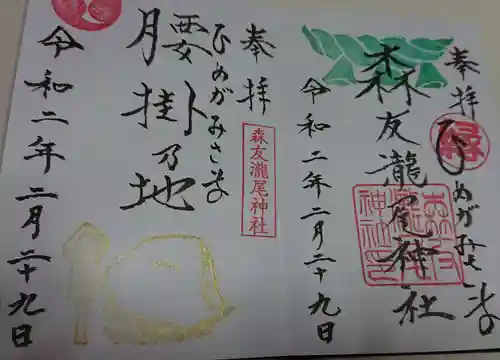 奉拝
ひめがみさま
森友瀧尾神社
令和二年二月二十九日
奉拝
森友瀧尾神社
ひめがみさま
腰掛乃地
令和二年二月二十九日